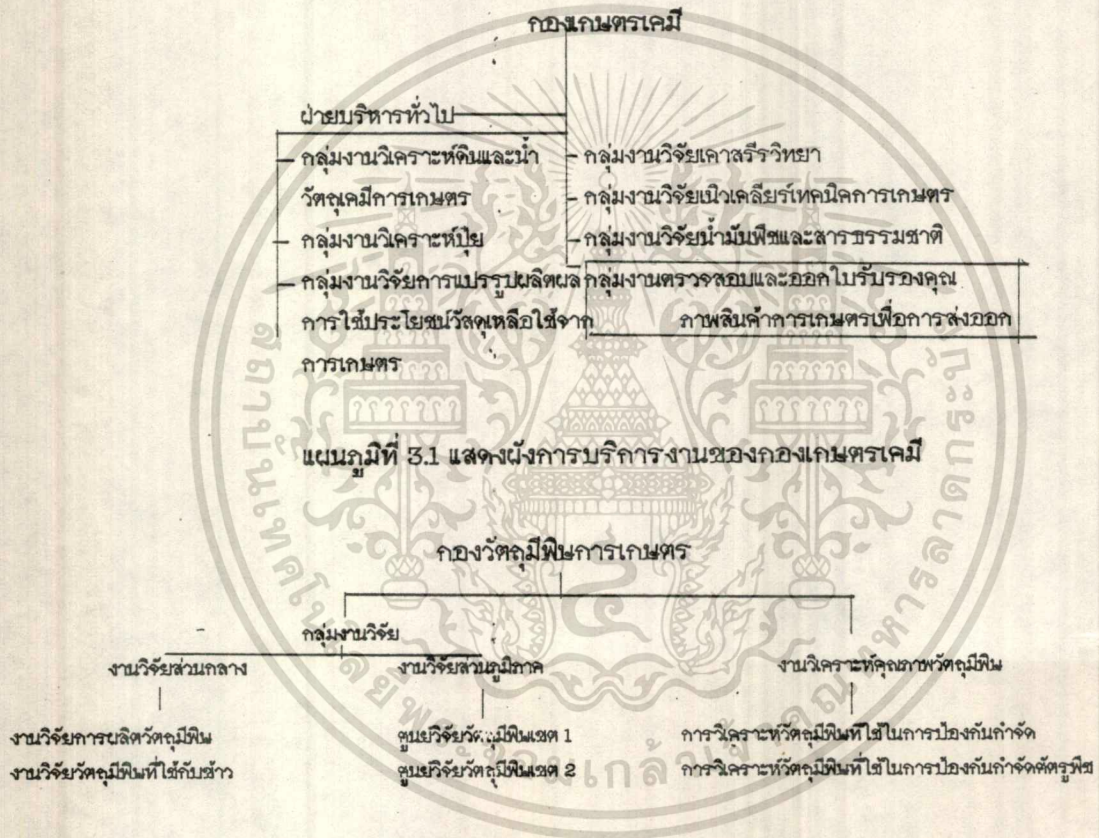 กองเกษตรเคมี
ฝ่ายบริหารทั่วไป
กลุ่มงานวิเคราะห์ดินและน้ำ
วัตถุเคมีการเกษตร
กลุ่มงานวิเคราะห์ปุ๋ย
กลุ่มงานวิจัยการแปรรูปผลิตผล
การใช้ประโยชน์วัสดุเหลือใช้จาก
การเกษตร
กลุ่มงานวิจัยเคาสรีรวิทยา
กลุ่มงานวิจัยนิวเคลียร์เทคนิคการเกษตร
กลุ่มงานวิจัยน้ำมันพืชและสารธรรมชาติ
กลุ่มงานตรวจสอบและออกใบรับรองคุณ
ภาพสินค้าการเกษตรเพื่อการส่งออก
แผนภูมิที่ 3.1 แสดงผังการบริการงานของกองเกษตรเคมี
กองวัตถุมีพิษการเกษตร
กลุ่มงานวิจัย
งานวิจัยส่วนกลาง
งานวิจัยส่วนภูมิภาค
งานวิเคราะห์คุณภาพวัตถุมีพิษ
งานวิจัยการผลิตวัตถุมีพิษ
งานวิจัยวัตถุมีพิษที่ใช้กับข้าว
ศูนย์วิจัยวัตถุมีพิษเขต 1
ศูนย์วิจัยวัตถุมีพิษเขต 2
การวิเคราะห์วัตถุมีพิษที่ใช้ในการป้องกันกำจัด
การวิเคราะห์วัตถุมีพิษที่ใช้ในการป้องกันกำจัดศัตรูพืช
สถาบันเทคโนโลยีพระจอมเกล้าเจ้าคุณทหารลาดกระบัง